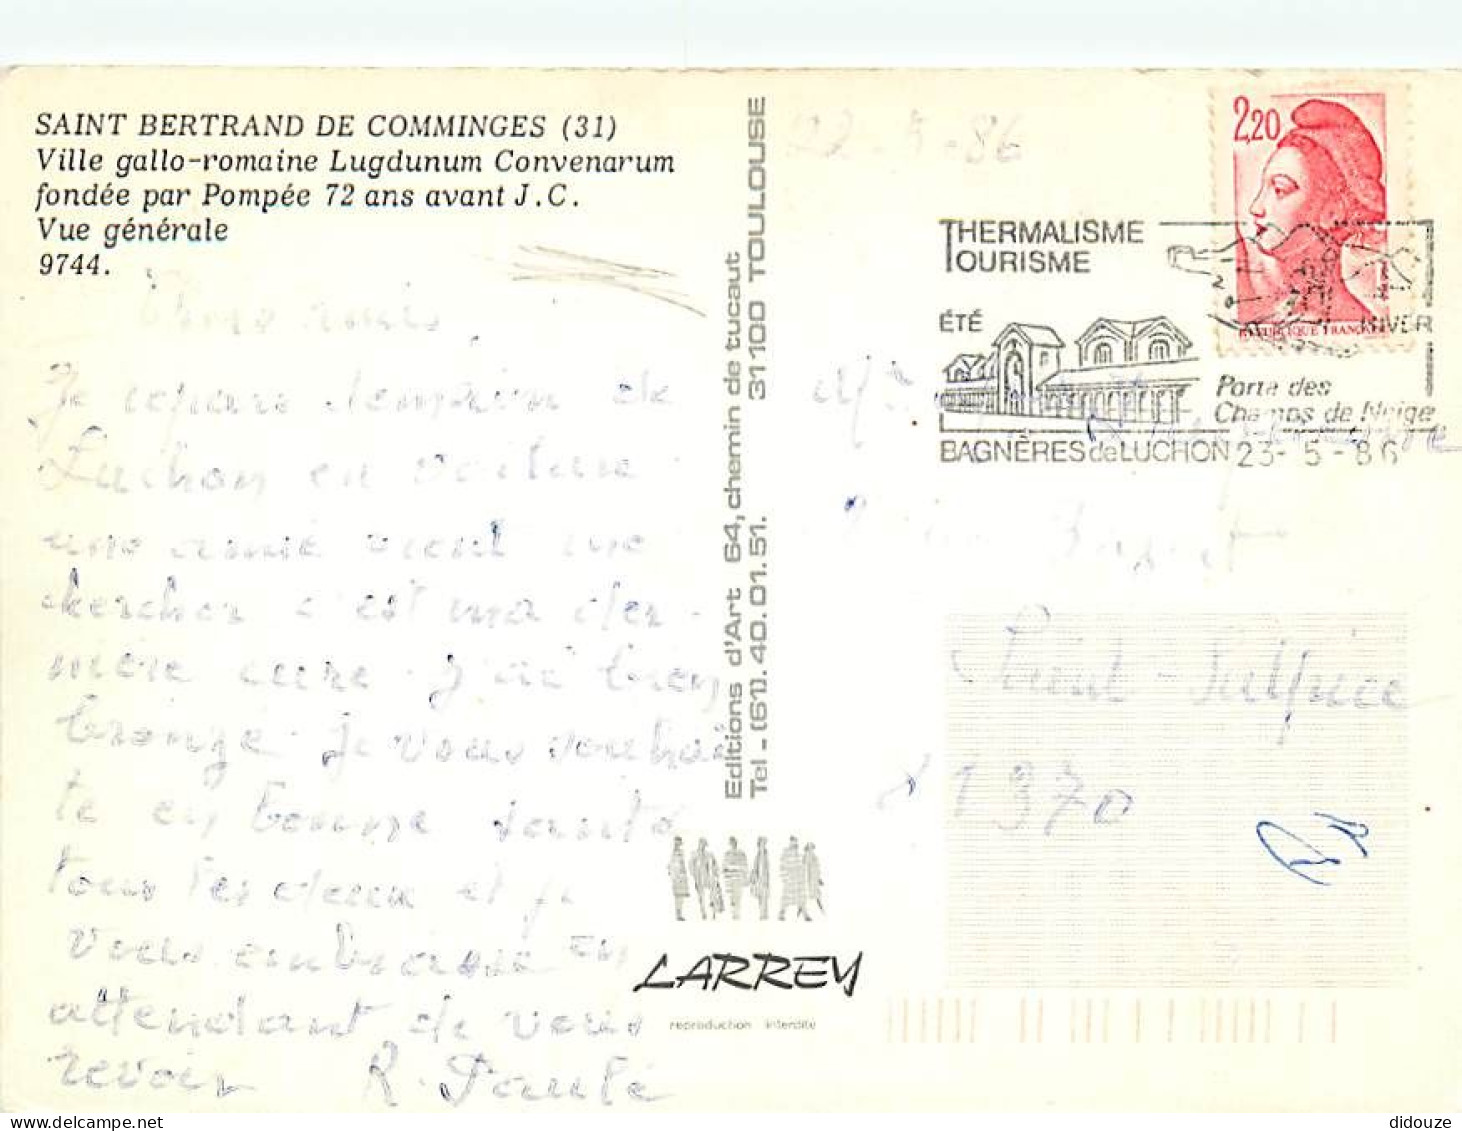 SAINT BERTRAND DE COMMINGES (31)
Ville gallo-romaine Lugdunum Convenarum
fondée par Pompée 72 ans avant J.C.
Vue générale
9744.
Je repars demain de
Luchon en voiture
une amie vient me
chercher c'est ma der-
nière cure. J'ai bien
bronzé. je vous souhai
te en bonne santé
tous les deux et je
vous embrasse en
attendant de vous
revoir R. Paule
Editions d'Art 64, chemin de tucaut
Tel - (61). 40. 01. 51. 31100 TOULOUSE
LARREY
reproduction interdite
22-5-86
2,20
REPUBLIQUE FRANÇAISE
THERMALISME
TOURISME
ÉTÉ
HIVER
Porte des
Champs de Neige
BAGNÈRES de LUCHON 23-5-86
Saint-Sulpice
81370
didouze